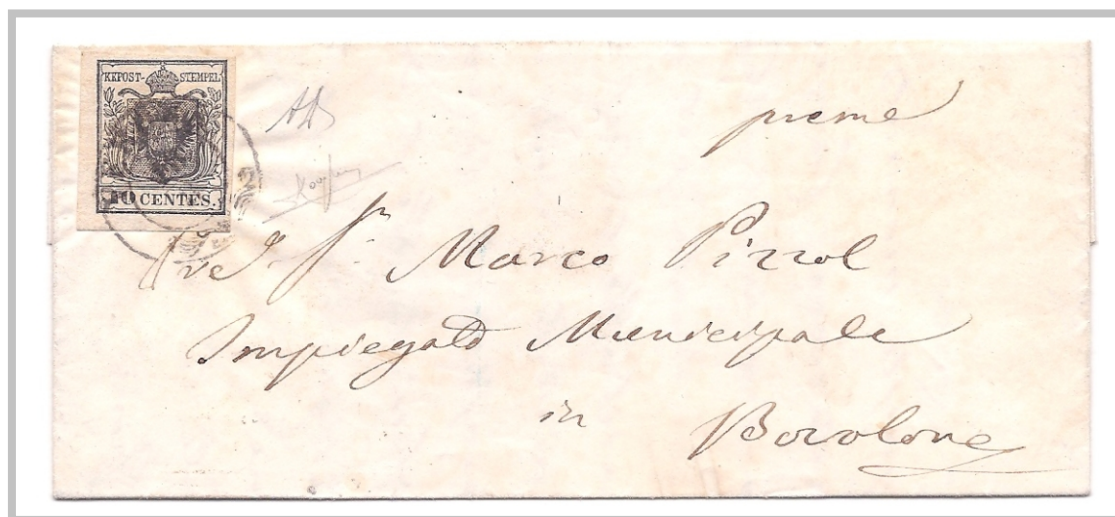 KKPOST-STEMPEL
10 CENTES.
preme
Marco Pizzol
Impiegato Municipale
in Bovolone